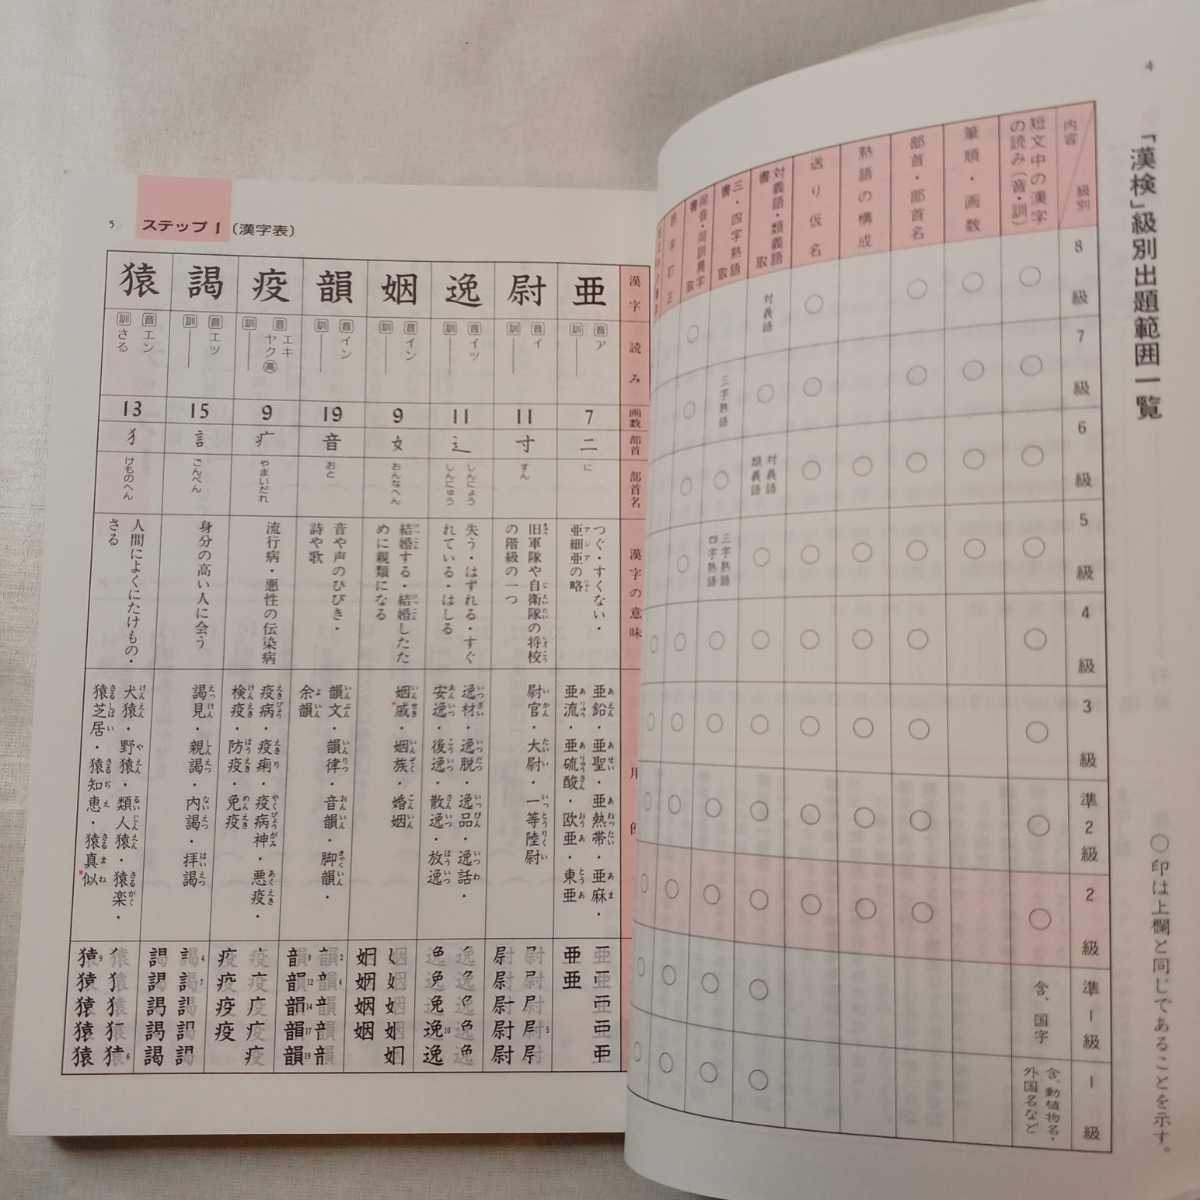 4
「漢検」級別出題範囲一覧
○印は上欄と同じであることを示す。
内容
級別
8級
7級
6級
5級
4級
3級
準2級
2級
準1級
1級
短文中の漢字の読み(音・訓)
○
○
○
○
○
○
○
○
含、国字
含、動植物名・外国名など
筆順・画数
○
○
○
○
部首・部首名
○
○
○
○
○
○
○
○
熟語の構成
○
○
○
○
○
○
送り仮名
○
○
○
○
○
○
○
○
対義語・類義語
書取
対義語
○
対義語
類義語
○
○
○
○
○
○
○
三・四字熟語
書取
三字熟語
○
三字熟語
四字熟語
○
○
○
○
○
○
同音・同訓異字
書取
○
○
○
○
○
○
○
○
○
○
誤字訂正
5
ステップ1
(漢字表)
漢字
読み
画数
部首
部首名
漢字の意味
用例
亜
音 ア
訓 ―
7
二
に
つぐ・すくない・
亜細亜の略
亜鉛・亜聖・亜熱帯・亜麻・
亜流・亜硫酸・欧亜・東亜
尉
音 イ
訓 ―
11
寸
すん
旧軍隊や自衛隊の将校
の階級の一つ
尉官・大尉・一等陸尉
逸
音 イツ
訓 ―
11
辶
しんにょう
しんにゅう
失う・はずれる・すぐ
れている・はしる
逸材・逸脱・逸品・逸話・
安逸・後逸・散逸・放逸
姻
音 イン
訓 ―
9
女
おんなへん
結婚する・結婚したた
めに親類になる
姻戚・姻族・婚姻
韻
音 イン
訓 ―
19
音
おと
音や声のひびき・
詩や歌
韻文・韻律・音韻・脚韻・
余韻
疫
音 エキ
ヤク高
訓 ―
9
疒
やまいだれ
流行病・悪性の伝染病
疫病・疫痢・疫病神・悪疫・
検疫・防疫・免疫
謁
音 エツ
訓 ―
15
言
ごんべん
身分の高い人に会う
謁見・親謁・内謁・拝謁
猿
音 エン
訓 さる
13
犭
けものへん
人間によくにたけもの・
さる
犬猿・野猿・類人猿・猿楽・
猿芝居・猿知恵・猿真似